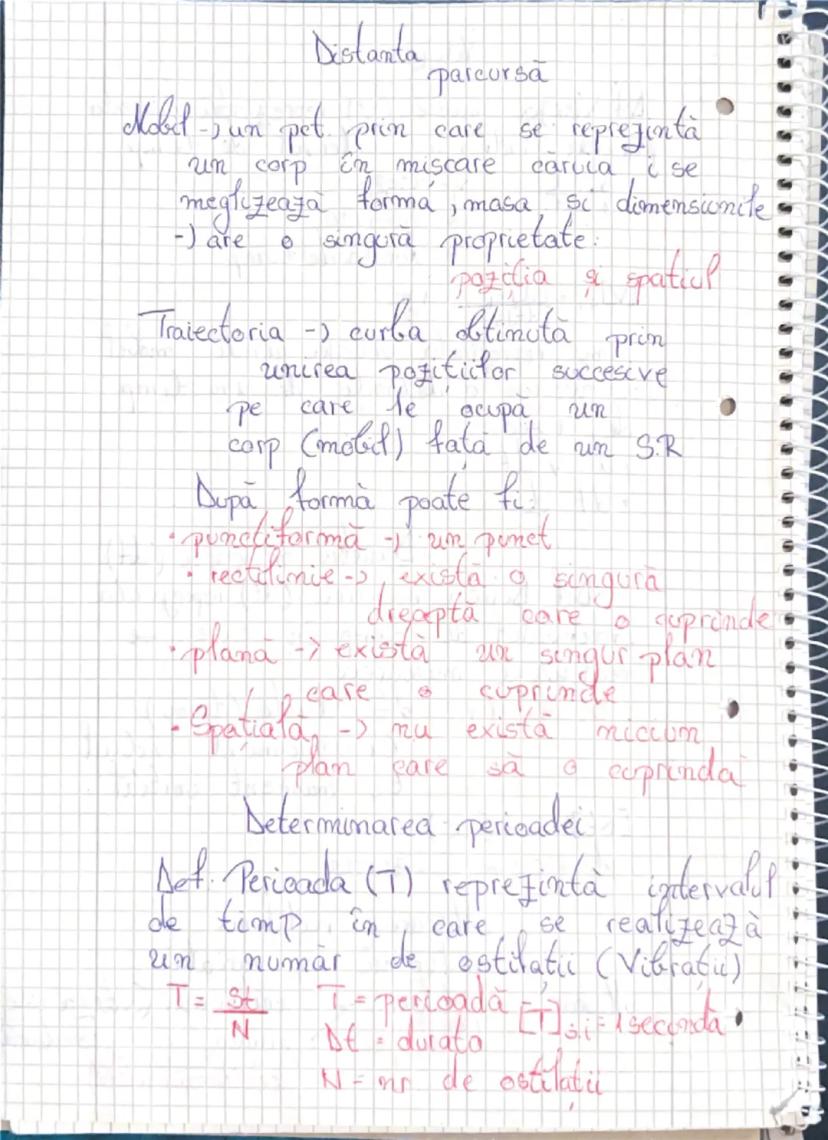 Distanta
parcursă
Mobil -> un pct prin care se reprezintă
un corp în mișcare căruia i se
neglizează forma, masa și dimensiunile
-> are o singură proprietate:
poziția și spațiul
Traiectoria -> curba obtinută prin
unirea pozițiilor succesive
pe care le ocupă un
corp (mobil) față de un S.R
După formă poate fi:
• punctiformă -> un punct
• rectilinie -> există o singură
dreaptă care o cuprinde
• plană -> există un singur plan
care o cuprinde
• Spațială -> nu există niciun
plan care să o cuprindă
Determinarea perioadei
Def. Perioada (T) reprezintă intervalul
de timp în care se realizează
un număr de ostilații (Vibrații)
T = St/N T = perioadă [T]s.i = 1 secundă
Δt = durata
N = nr de ostilații